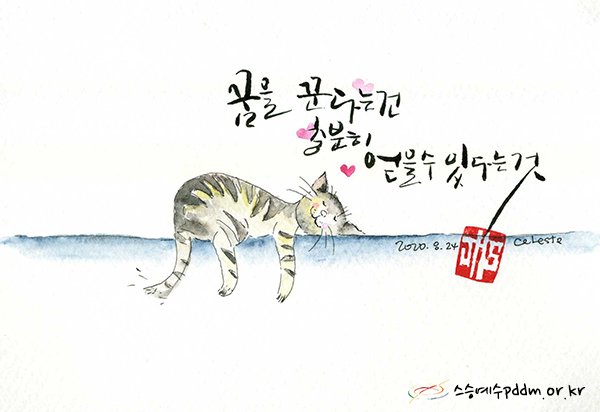 꿈을 꾼다는건
충분히
얻을수 있다는것
2020. 8. 24 Celeste
스승예수pddm.or.kr